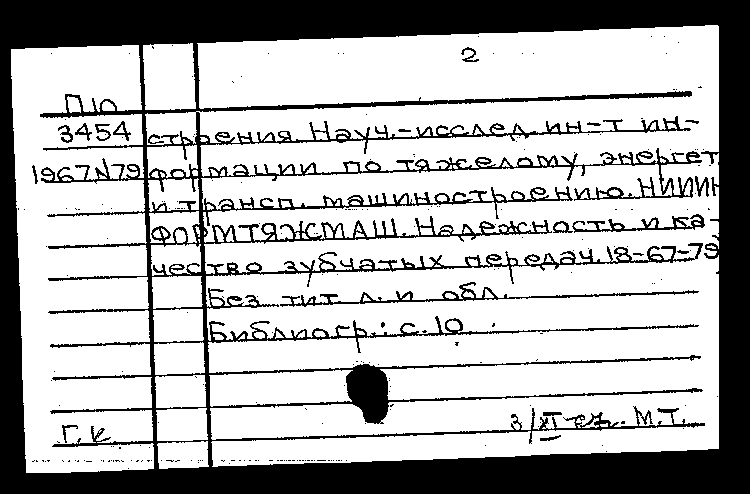 2
П10
3454 строения Науч.-исслед. ин-т ин-
1967 N79 формации по тяжелому, энергет
и трансп. машиностроению. НИИИН
ФОРМТЯЖМАШ. Надежность и ка-
чество зубчатых передач. 18-67-79
Без тит л. и обл.
Библиогр.: с. 10.
Г.К. 3/XI М.Т.